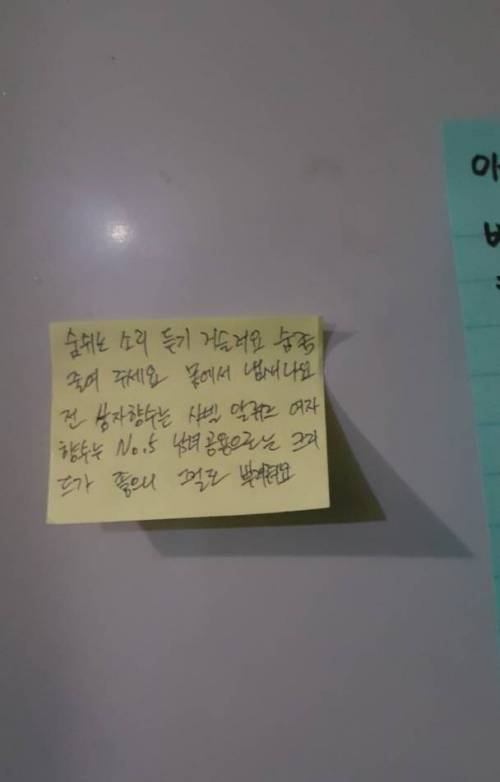 숨쉬는 소리 듣기 거슬려요 숨좀
줄여 주세요 몸에서 냄새나요
전 남자향수는 샤넬 알뤼르 여자
향수는 No.5 남녀공용으로는 크리
드가 좋으니 그걸로 뿌려줘요
아